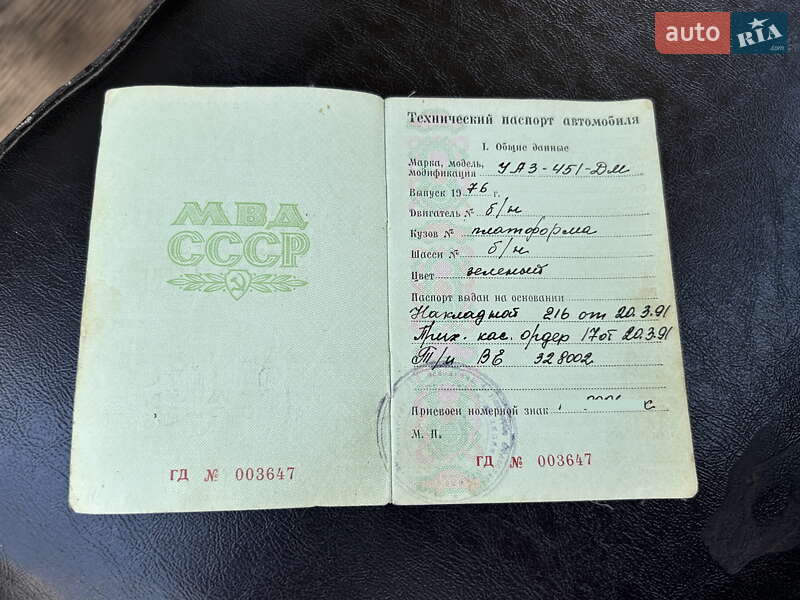 auto RIA.com
МВД
СССР
ГД № 003647
Технический паспорт автомобиля
I. Общие данные
Марка, модель,
модификация УАЗ-451-ДМ
Выпуск 1976 г.
Двигатель № б/н
Кузов № платформа
Шасси № б/н
Цвет зеленый
Паспорт выдан на основании
Накладной 216 от 20.3.91
Прих. кас. ордер 17 от 20.3.91
Т/п ВЕ 328002
Присвоен номерной знак
М. П.
ГД № 003647